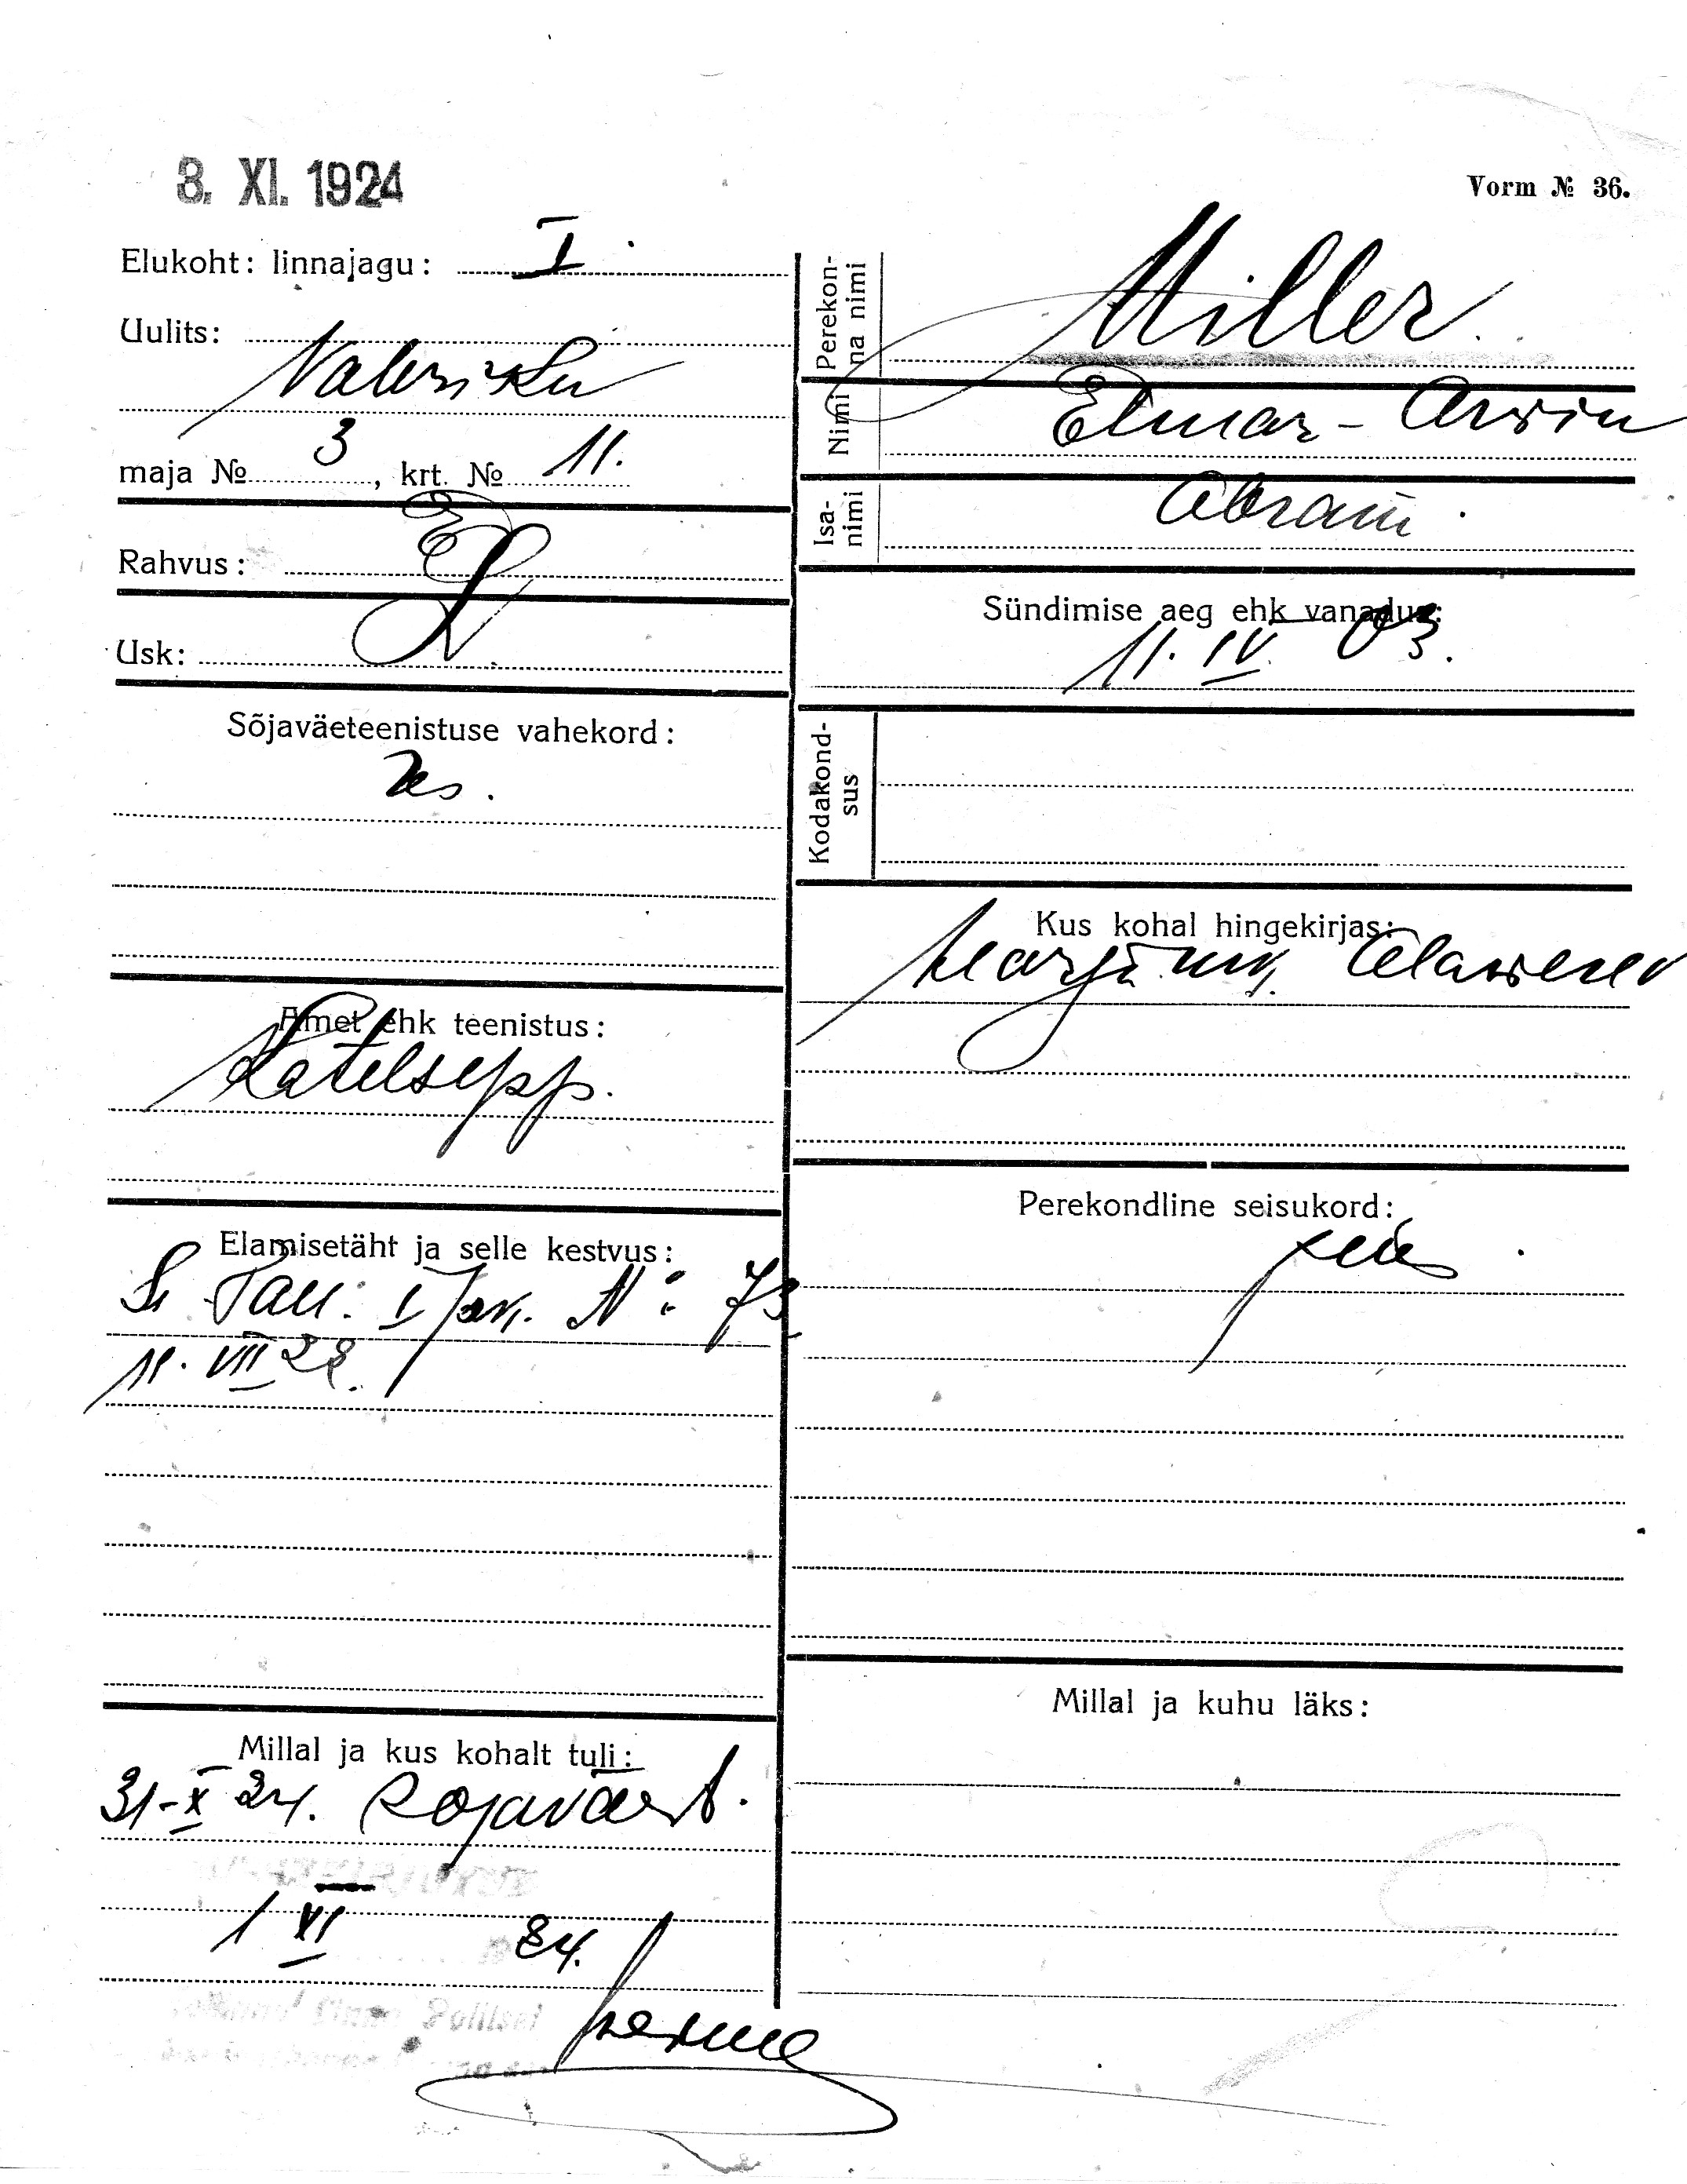 3. XI. 1924
Vorm № 36.
Elukoht: linnajagu: I
Uulits:
maja № 3, krt. № 11.
Rahvus: E
Usk: L
Sõjaväeteenistuse vahekord:
Amet ehk teenistus:
Katelsepp.
Elamisetäht ja selle kestvus:
Tall. I jsk. N: 73
11. VII 22.
Millal ja kus kohalt tuli:
31-X 24. Sojaväest.
1 XI 24.
Perekonna nimi
Miller
Nimi
Elmar - Arvin
Isanimi
Abram
Sündimise aeg ehk vanadus:
11. IV 03.
Kodakondsus
Kus kohal hingekirjas:
Perekondline seisukord:
Millal ja kuhu läks: